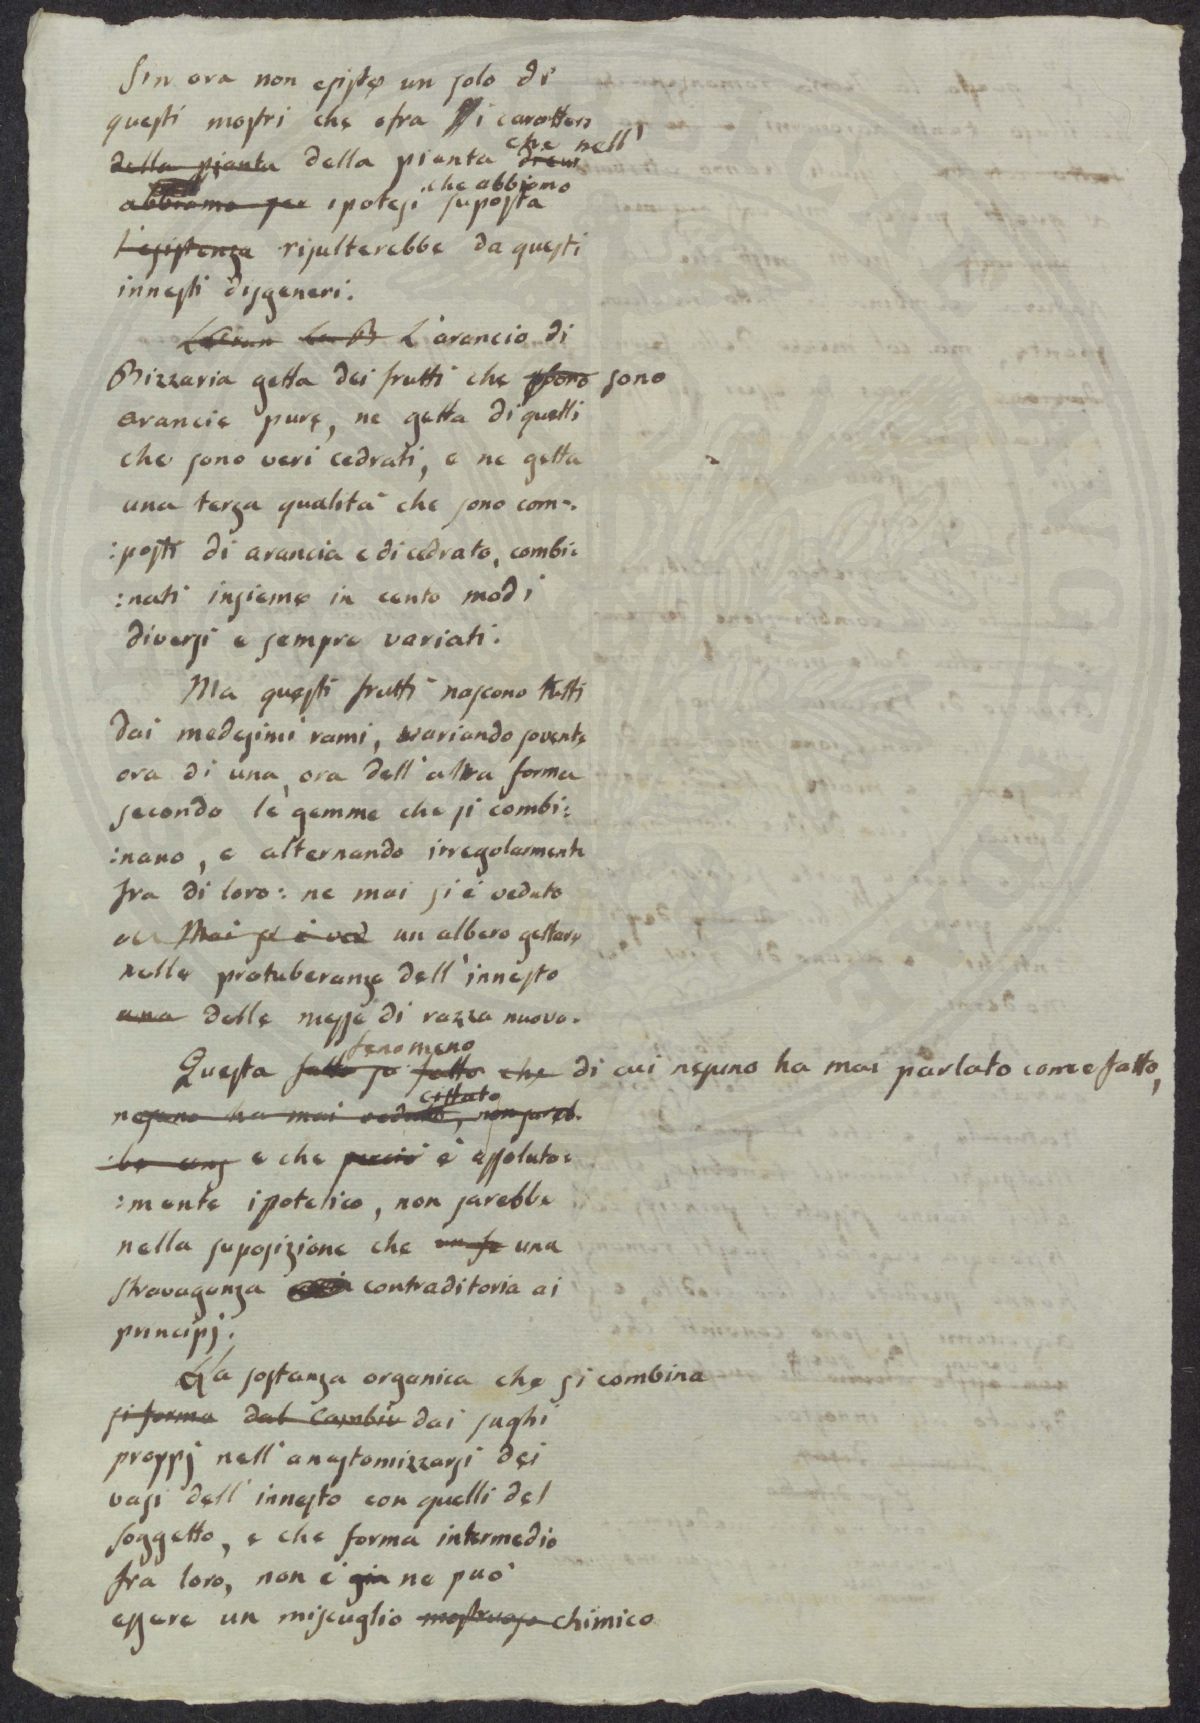 Sin ora non esiste un solo di
questi mostri che ofra i caratteri
della pianta della pianta che nell'
abbiamo per ipotesi che abbiamo suposta
l'esistenza risulterebbe da questi
innesti disgeneri.
L'arancio di
Bizzaria getta dei frutti che sono sono
arancie pure, ne getta di quelli
che sono veri cedrati, e ne getta
una terza qualità che sono com=
:posti di arancia e di cedrato, combi=
:nati insieme in cento modi
diversi e sempre variati.
Ma questi frutti nascono tutti
dai medesimi rami, variando sovente
ora di una, ora dell'altra forma
secondo le gemme che si combi:
:nano, e alternando irregolarmente
fra di loro: ne mai si è veduto
Mai si è ved un albero gettare
nelle protuberanze dell'innesto
una delle messe di razza nuova.
Questa fatto fenomeno fatto che di cui nessuno ha mai parlato come fatto,
nessuno ha mai veduto, cittato non sareb.
:be e che perciò è assoluta:
:mente ipotetico, non sarebbe
nella suposizione che una
stravaganza contraditoria ai
principj.
La sostanza organica che si combina
si forma dal Cambiu dai sughi
proppj nell'anastomizzarsi dei
vasi dell'innesto con quelli del
soggetto, e che forma intermedio
fra loro, non è già ne può
essere un miscuglio mostruoso chimico